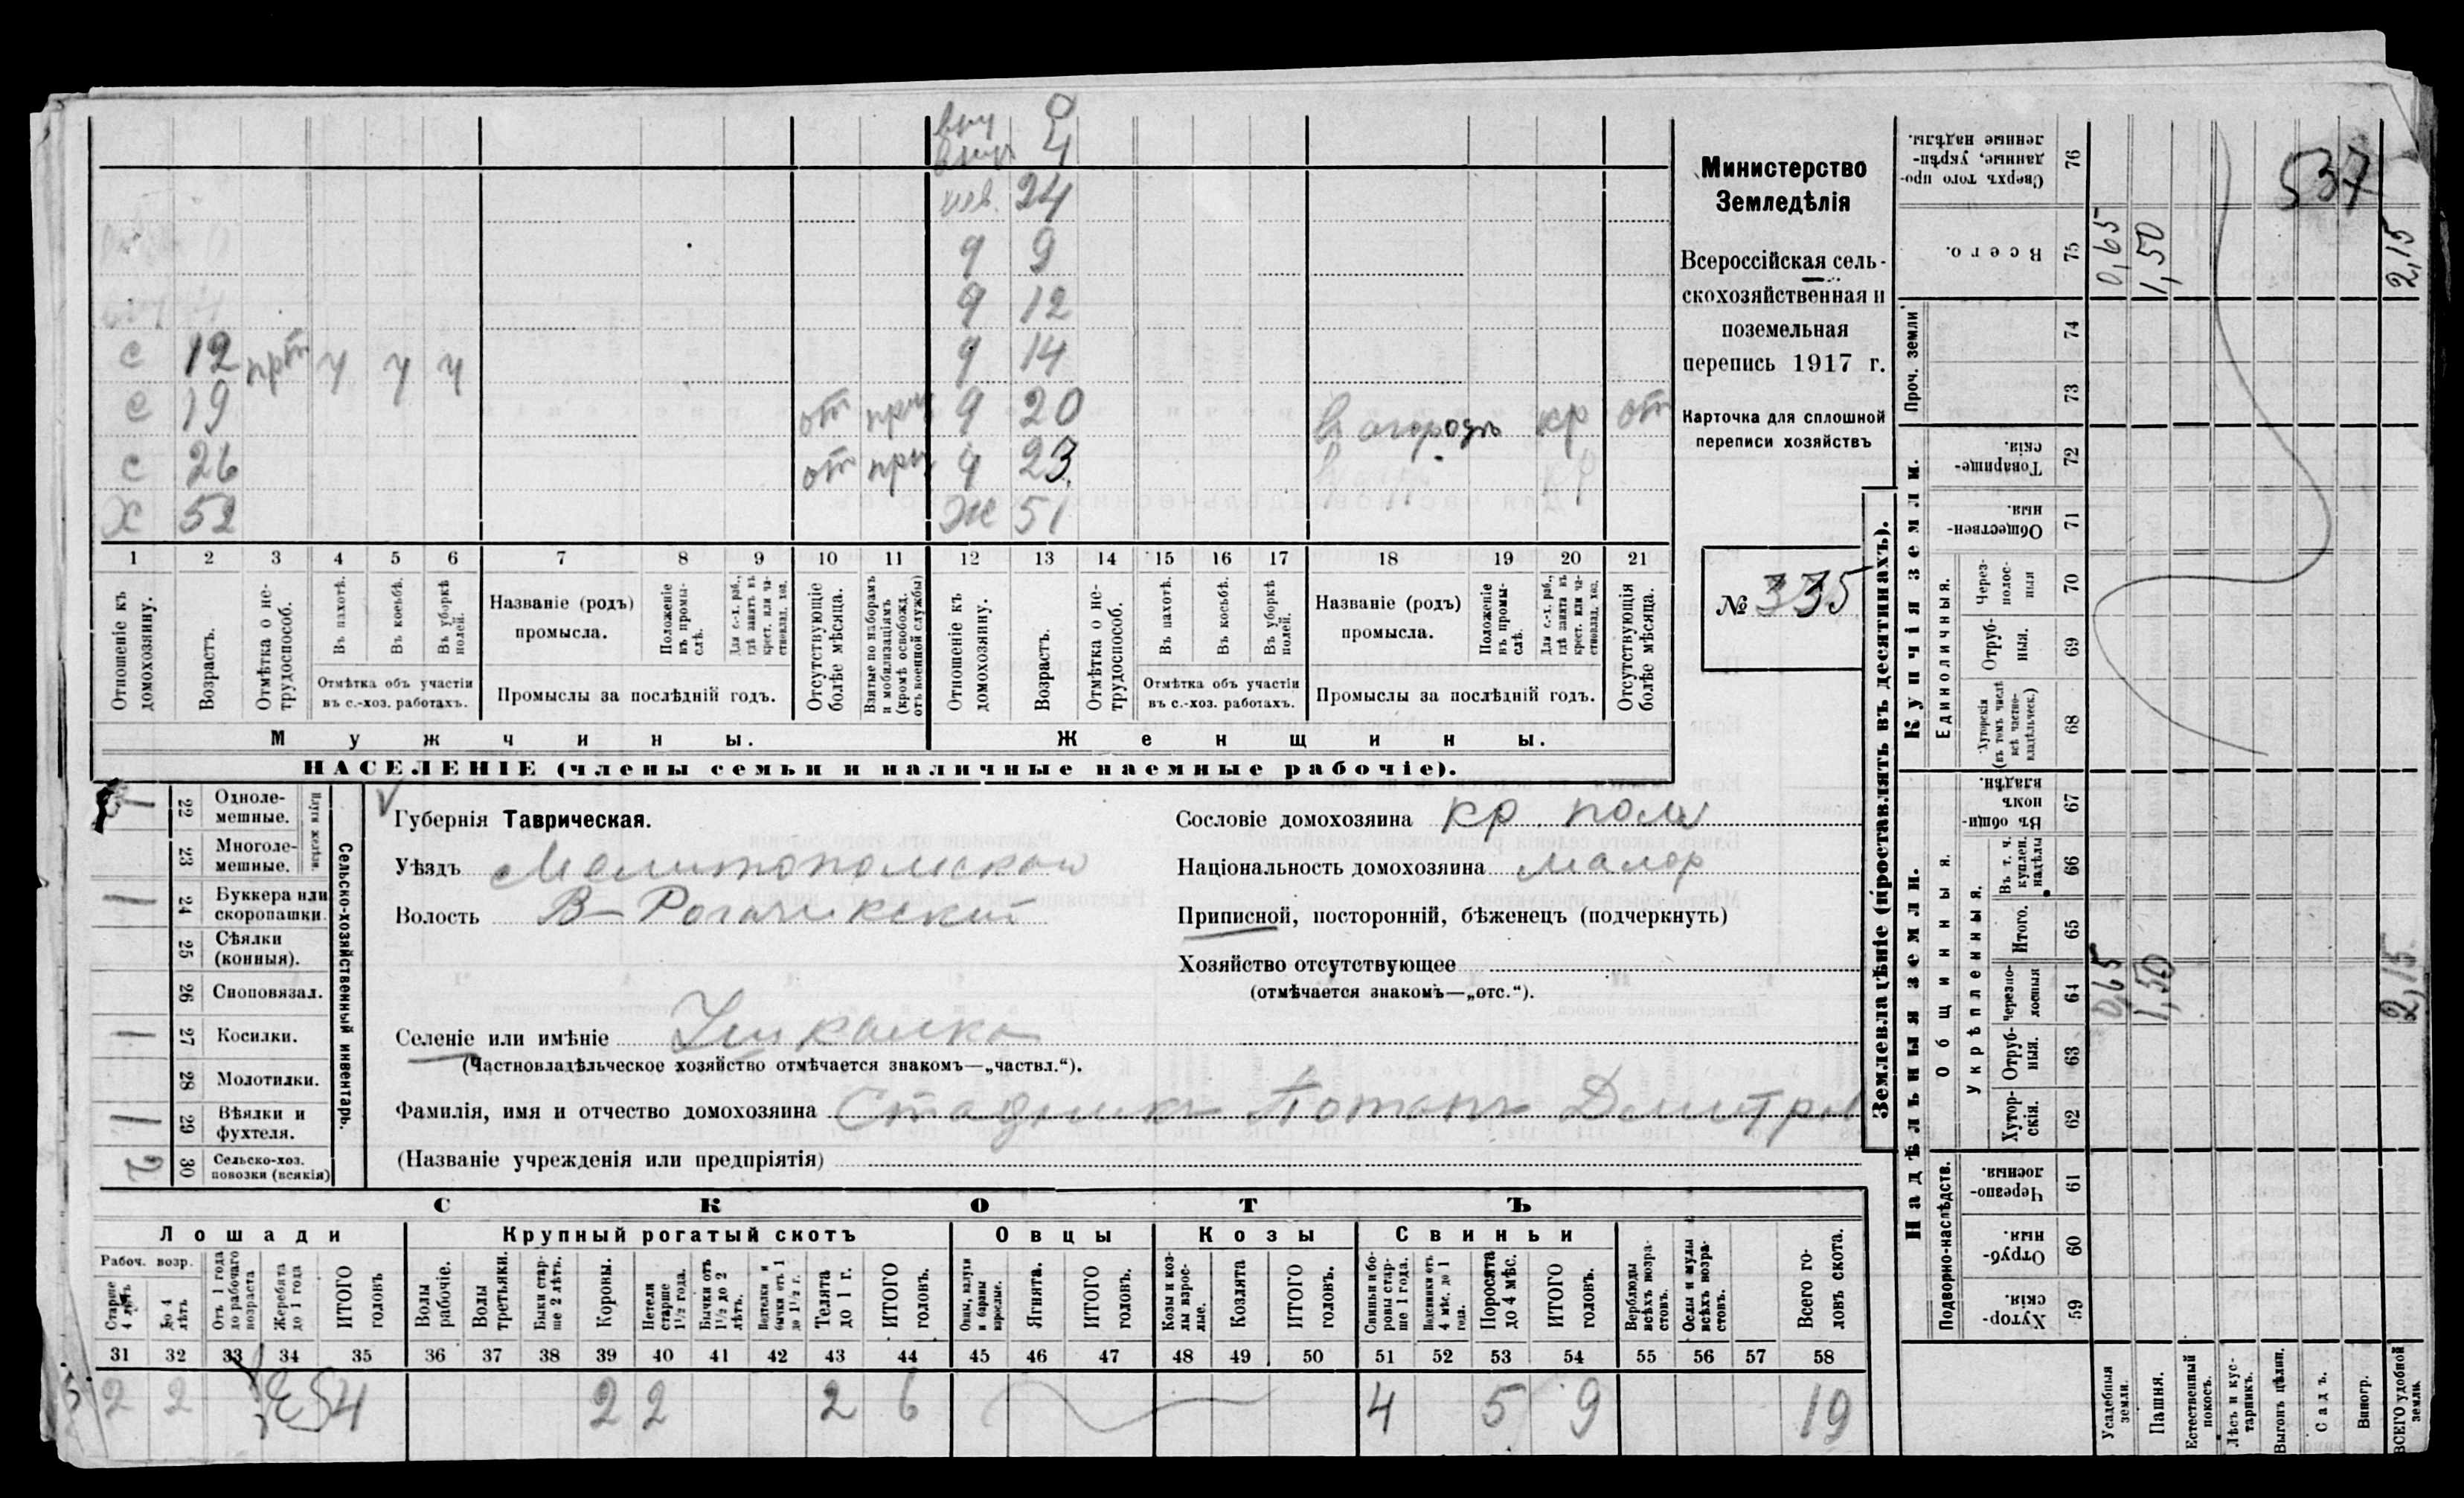 вну 9
внуч 4
нев. 24
д 9
д 12
с 12 прт ч ч ч д 14
с 19 от при д 20 в огородъ кр от
с 26 от при д 23
Х 52 Ж 51
1 2 3 4 5 6 7 8 9 10 11 12 13 14 15 16 17 18 19 20 21
Отношеніе къ домохозяину.
Возрастъ.
Отмѣтка о не-трудоспособ.
Въ пахотѣ.
Въ косьбѣ.
Въ уборкѣ полей.
Отмѣтка объ участіи
въ с.-хоз. работахъ.
Названіе (родъ)
промысла.
Положеніе въ промы-слѣ.
Для с.-х. раб., гдѣ занятъ въ крест. или ча-стновлад. хоз.
Промыслы за послѣдній годъ.
Отсутствующіе болѣе мѣсяца.
Взятые по наборамъ и мобилизаціямъ (кромѣ освобожд. отъ военной службы)
Отношеніе къ домохозяину.
Возрастъ.
Отмѣтка о не-трудоспособ.
Въ пахотѣ.
Въ косьбѣ.
Въ уборкѣ полей.
Отмѣтка объ участіи
въ с.-хоз. работахъ.
Названіе (родъ)
промысла.
Положеніе въ промы-слѣ.
Для с.-х. раб., гдѣ занята въ крест. или ча-стновлад. хоз.
Промыслы за послѣдній годъ.
Отсутствующія болѣе мѣсяца.
Мужчины.
Женщины.
НАСЕЛЕНІЕ (члены семьи и наличные наемные рабочіе).
Министерство
Земледѣлія
Всероссійская сель-
скохозяйственная и
поземельная
перепись 1917 г.
Карточка для сплошной
переписи хозяйствъ
№ 335
Губернія Таврическая.
Уѣздъ Мелитопольской
Волость В-Рогачикской
Селеніе или имѣніе Ушкалка
(Частновладѣльческое хозяйство отмѣчается знакомъ—„частвл.“).
Фамилія, имя и отчество домохозяина Стадникъ Потапъ Дмитр
(Названіе учрежденія или предпріятія)
Сословіе домохозяина кр
Національность домохозяина малор
Приписной, посторонній, бѣженецъ (подчеркнуть)
Хозяйство отсутствующее
(отмѣчается знакомъ—„отс.“).
Сельско-хозяйственный инвентарь.
22 Одноле-
мешные.
23 Многоле-
мешные.
1 24 Буккера или
скоропашки.
25 Сѣялки
(конныя).
26 Сноповязал.
1 27 Косилки.
28 Молотилки.
1 29 Вѣялки и
фухтеля.
2 30 Сельско-хоз.
повозки (всякія)
СКОТЪ
Лошади Крупный рогатый скотъ Овцы Козы Свиньи
Рабоч. возр.
Старше 4 лѣтъ
До 4 лѣтъ
Отъ 1 года до рабочаго возраста
Жеребята до 1 года
ИТОГО головъ
Волы рабочіе.
Волы третьяки.
Быки стар-ше 2 лѣтъ.
Коровы.
Нетели старше 1½ года.
Бычки отъ 1½ до 2 лѣтъ.
Подтелки и бычки отъ 1 до 1½ г.
Телята до 1 г.
ИТОГО головъ.
Овцы, валухи и бараны взрослые.
Ягнята.
ИТОГО головъ.
Козы и коз-лы взрос-лые.
Козлята
ИТОГО головъ.
Свиньи и бо-ровы стар-ше 1 года.
Подсвинки отъ 4 мѣс. до 1 года.
Поросята до 4 мѣс.
ИТОГО головъ.
Верблюды всѣхъ возра-стовъ.
Ослы и мулы всѣхъ возра-стовъ.
Всего го-ловъ скота.
31 32 33 34 35 36 37 38 39 40 41 42 43 44 45 46 47 48 49 50 51 52 53 54 55 56 57 58
2 2 4 2 2 2 6 4 5 9 19
Землевладѣніе (проставлять въ десятинахъ).
Надѣльныя земли. Купчія земли.
Подворно-наслѣдств. Общинныя. Укрѣпленныя. Единоличныя. Проч. земли
Хутор-скія. 59
Отруб-ныя. 60
Черезпо-лосныя. 61
Хутор-скія. 62
Отруб-ныя. 63
Черезпо-лосныя 64
Итого. 65
Въ т. ч. куплен. надѣлы 66
Въ общин-номъ владѣн. 67
Хуторскія (въ томъ числѣ всѣ частно-владѣльческ.) 68
Отруб-ныя. 69
Через-полос-ныя 70
Обществен-ныя. 71
Товарище-скія. 72
73
74
Всего. 75
Сверхъ того про-данные, укрѣп-ленные надѣлы. 76
Усадебныя земли. 0,65 0,65
Пашня. 1,50 1,50
Естественный покосъ.
Лѣсъ и кус-тарникъ.
Выгонъ цѣлин.
Садъ.
Виногр.
ВСЕГО удобной земли. 2,15 2,15
537